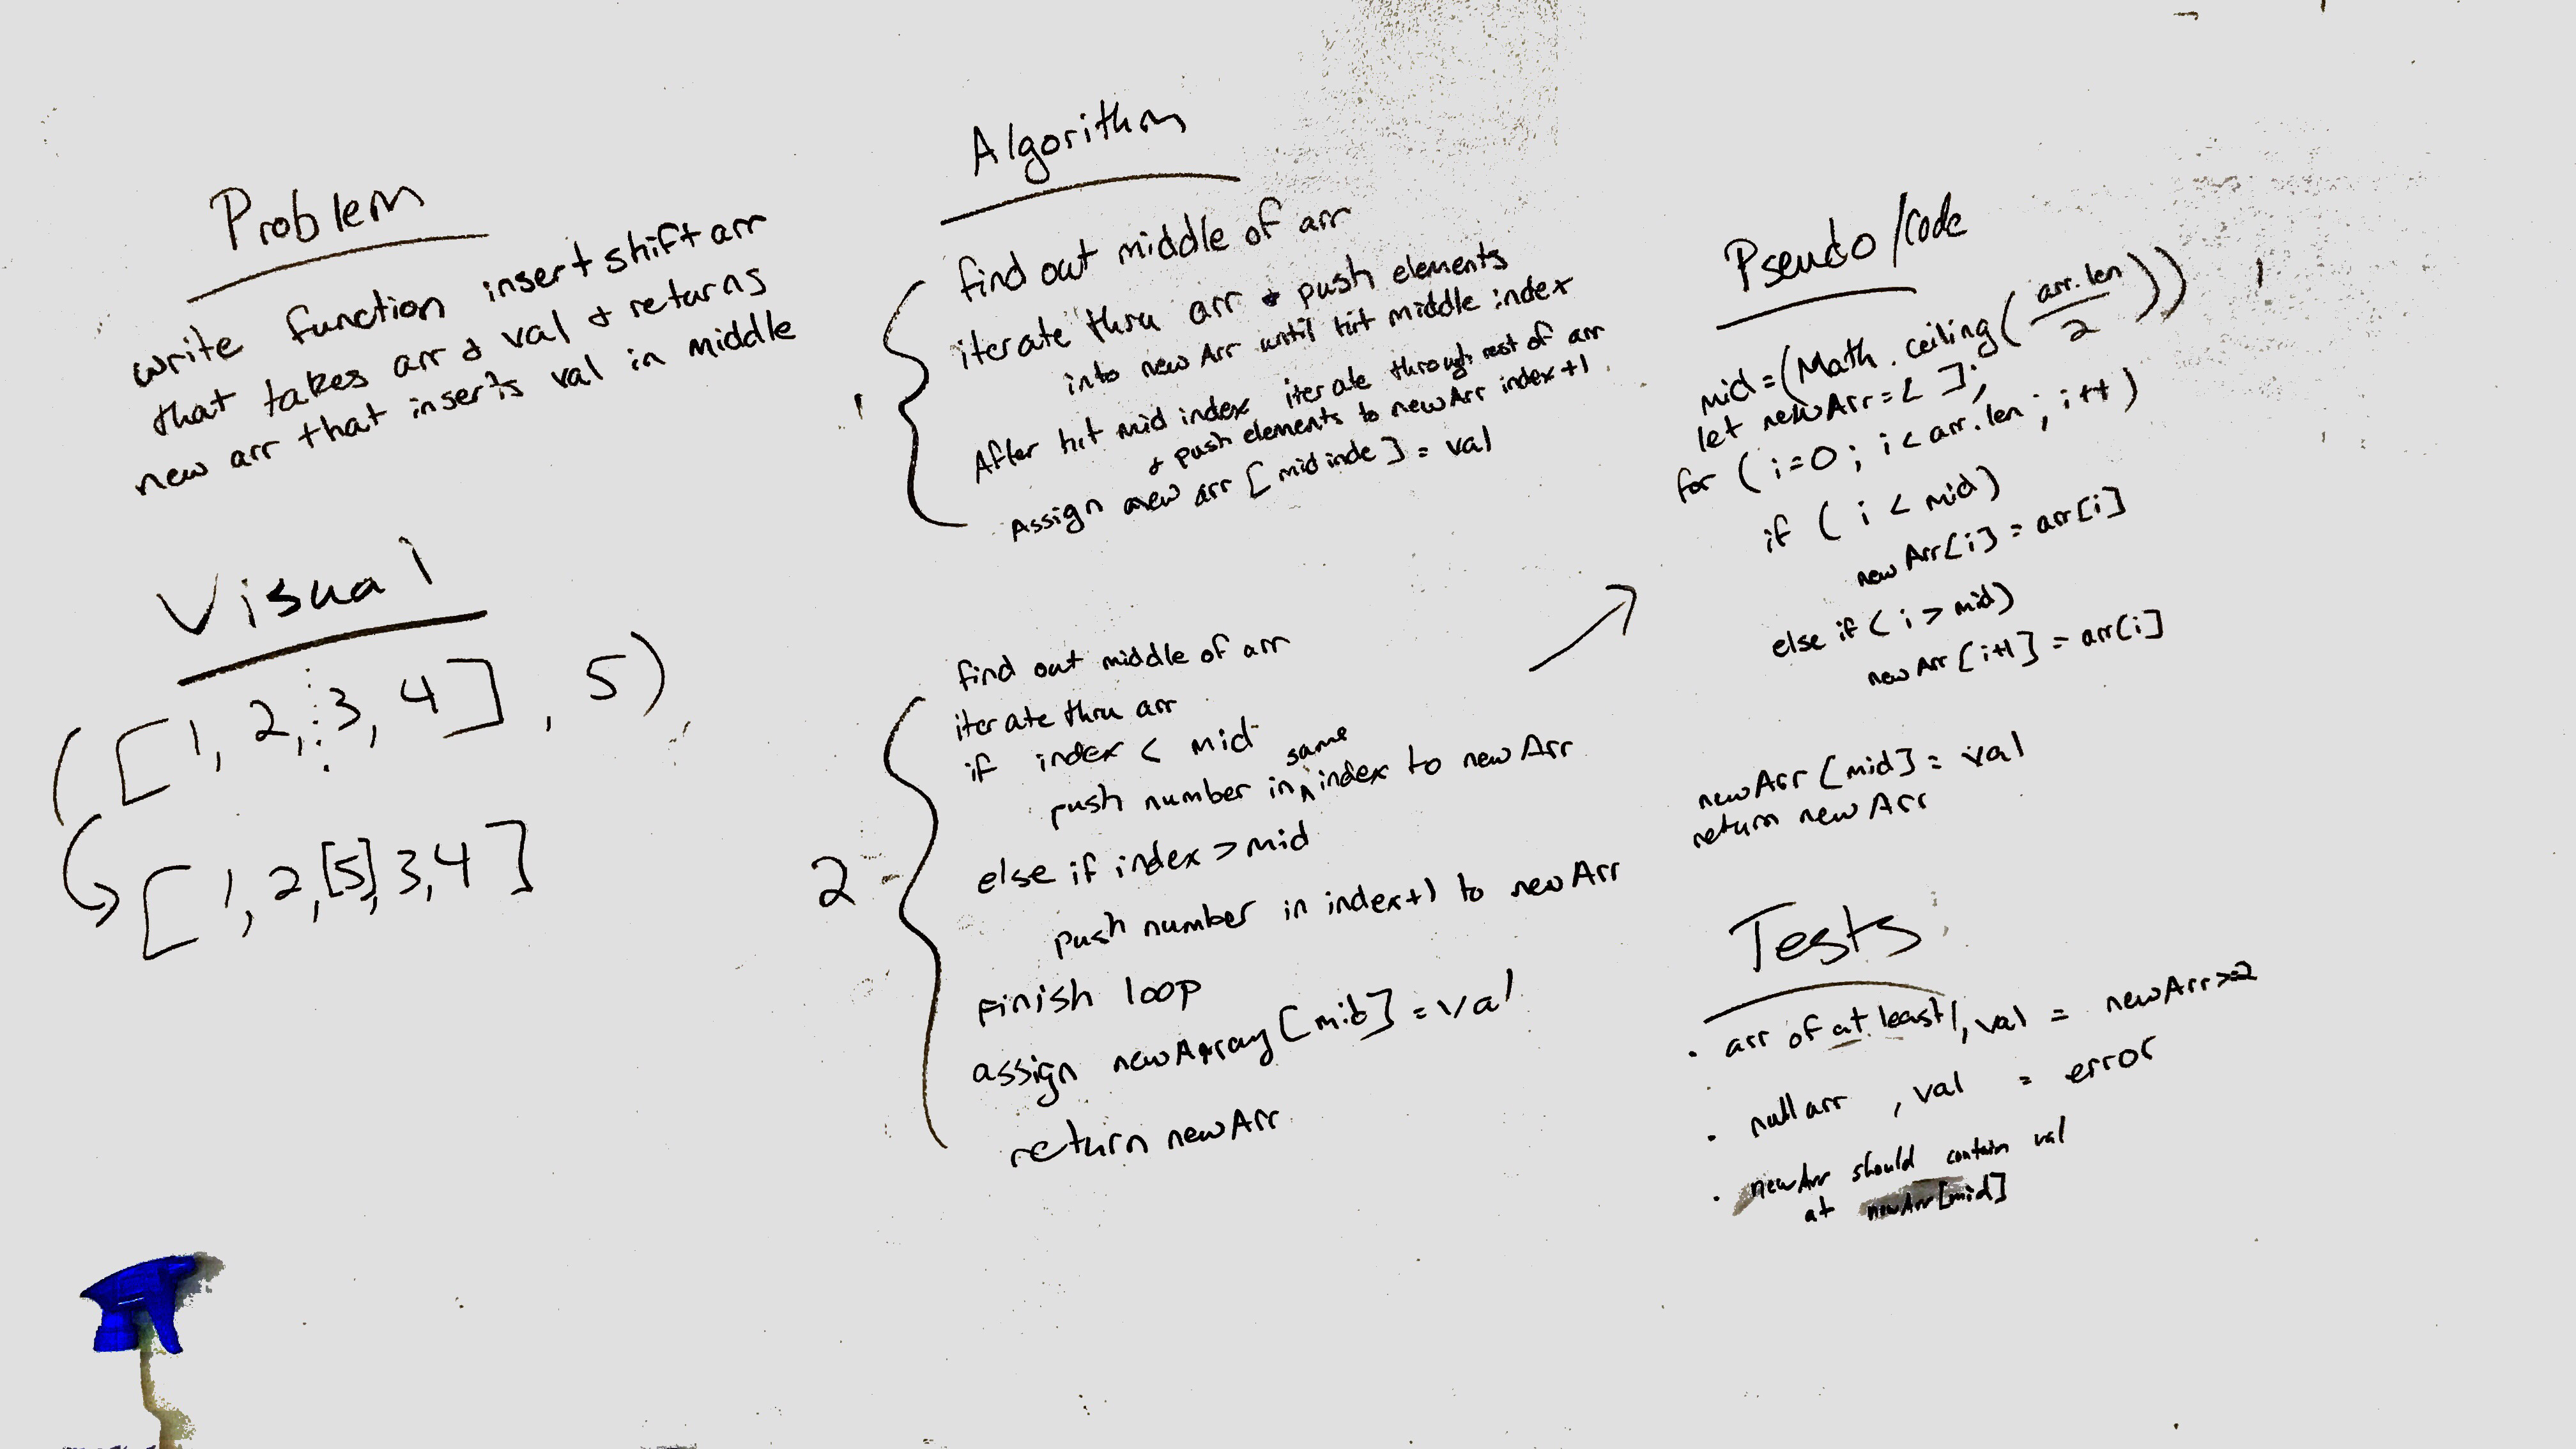 Problem
write function insertshiftarr
that takes arr & val & returns
new arr that inserts val in middle
Visual
([1, 2, 3, 4], 5)
[1, 2, [5], 3, 4]
Algorithm
1
find out middle of arr
iterate thru arr & push elements
into new Arr until hit middle index
After hit mid index iterate through rest of arr
& push elements to newArr index+1
Assign new arr [mid inde] = val
2
find out middle of arr
iterate thru arr
if index < mid
push number in same index to new Arr
else if index > mid
push number in index+1 to new Arr
Finish loop
assign newArray [mid] = val
return newArr
Pseudo/Code
mid = (Math.ceiling(arr.len/2))
let newArr = [ ];
for (i=0; i < arr.len; i++)
if (i < mid)
new Arr[i] = arr[i]
else if (i > mid)
new Arr [i+1] = arr[i]
newArr [mid] = val
return new Arr
Tests
· arr of at least 1, val = newArr>=2
· null arr, val = error
· newArr should contain val
at newArr[mid]